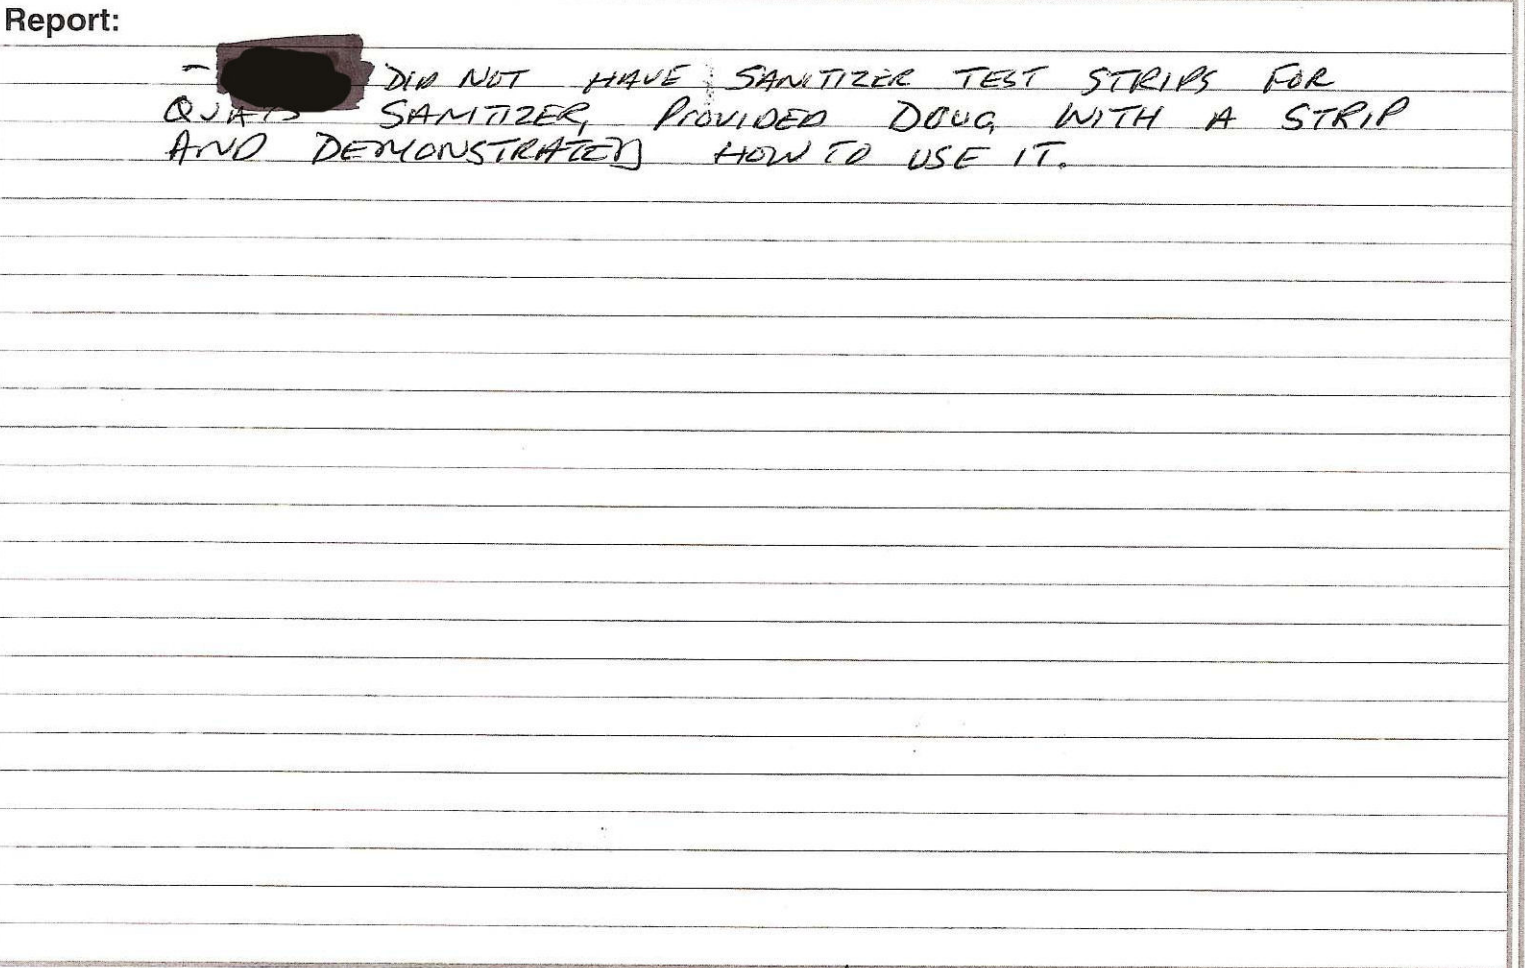 Report:
- DID NOT HAVE SANITIZER TEST STRIPS FOR
QUATS SANITIZER, PROVIDED DOUG WITH A STRIP
AND DEMONSTRATED HOW TO USE IT.